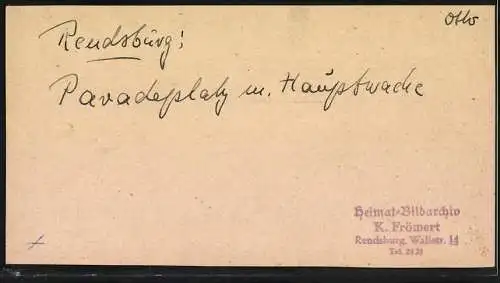 Otto
Rendsburg:
Paradeplatz m. Hauptwache
Heimat-Bildarchiv
K. Frömert
Rendsburg, Wallstr. 14
Tel. 2828